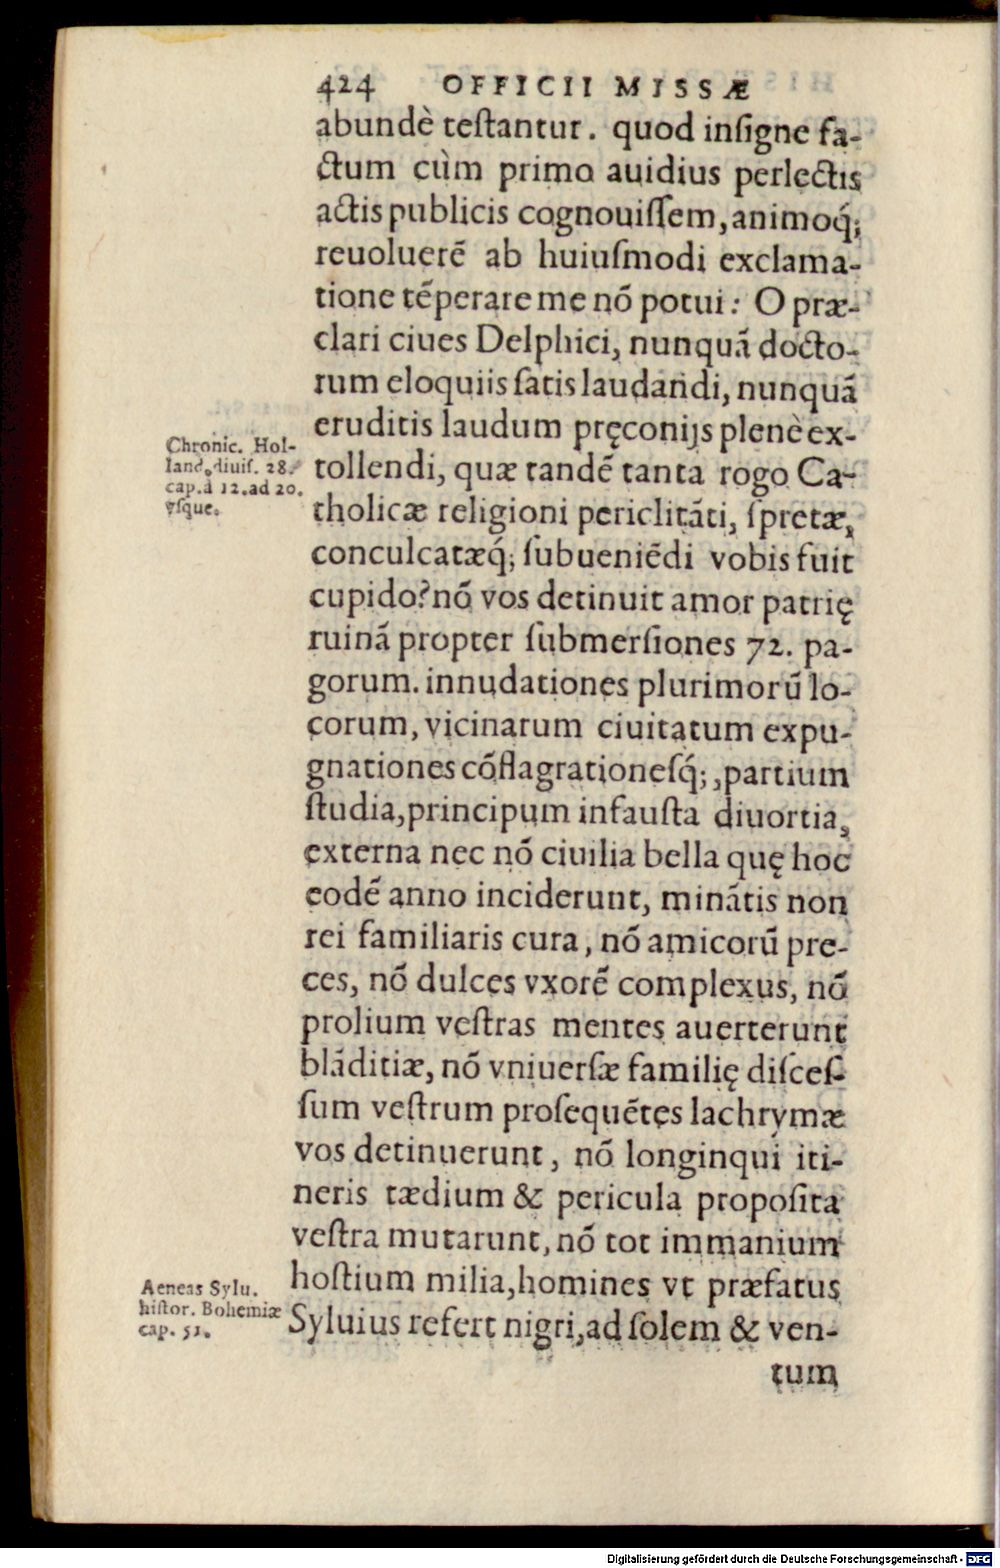 424 OFFICII MISSÆ
abundè teſtantur. quod inſigne fa-
ctum cùm primo auidius perlectis
actis publicis cognouiſſem, animoq́;
reuoluerẽ ab huiuſmodi exclama-
tione tẽperare me nõ potui: O præ-
clari ciues Delphici, nunquã docto-
rum eloquiis ſatis laudandi, nunquã
eruditis laudum pręconijs plenè ex-
Chronic. Hol-
land. diuiſ. 28.
cap. à 12. ad 20.
vſque.
tollendi, quæ tandẽ tanta rogo Ca-
tholicæ religioni periclitãti, ſpretæ,
conculcatæq́; ſubueniẽdi vobis fuit
cupido? nõ vos detinuit amor patrię
ruinã propter ſubmerſiones 72. pa-
gorum. innudationes plurimorũ lo-
corum, vicinarum ciuitatum expu-
gnationes cõflagrationeſq́;, partium
ſtudia, principum infauſta diuortia,
externa nec nõ ciuilia bella quę hoc
eodẽ anno inciderunt, minãtis non
rei familiaris cura, nõ amicorũ pre-
ces, nõ dulces vxorẽ complexus, nõ
prolium veſtras mentes auerterunt
blãditiæ, nõ vniuerſæ familię diſceſ-
ſum veſtrum proſequẽtes lachrymæ
vos detinuerunt, nõ longinqui iti-
neris tædium & pericula propoſita
veſtra mutarunt, nõ tot immanium
hoſtium milia, homines vt præfatus
Aeneas Sylu.
hiſtor. Bohemiæ
cap. 51.
Syluius refert nigri, ad ſolem & ven-
tum
Digitalisierung gefördert durch die Deutsche Forschungsgemeinschaft - DFG